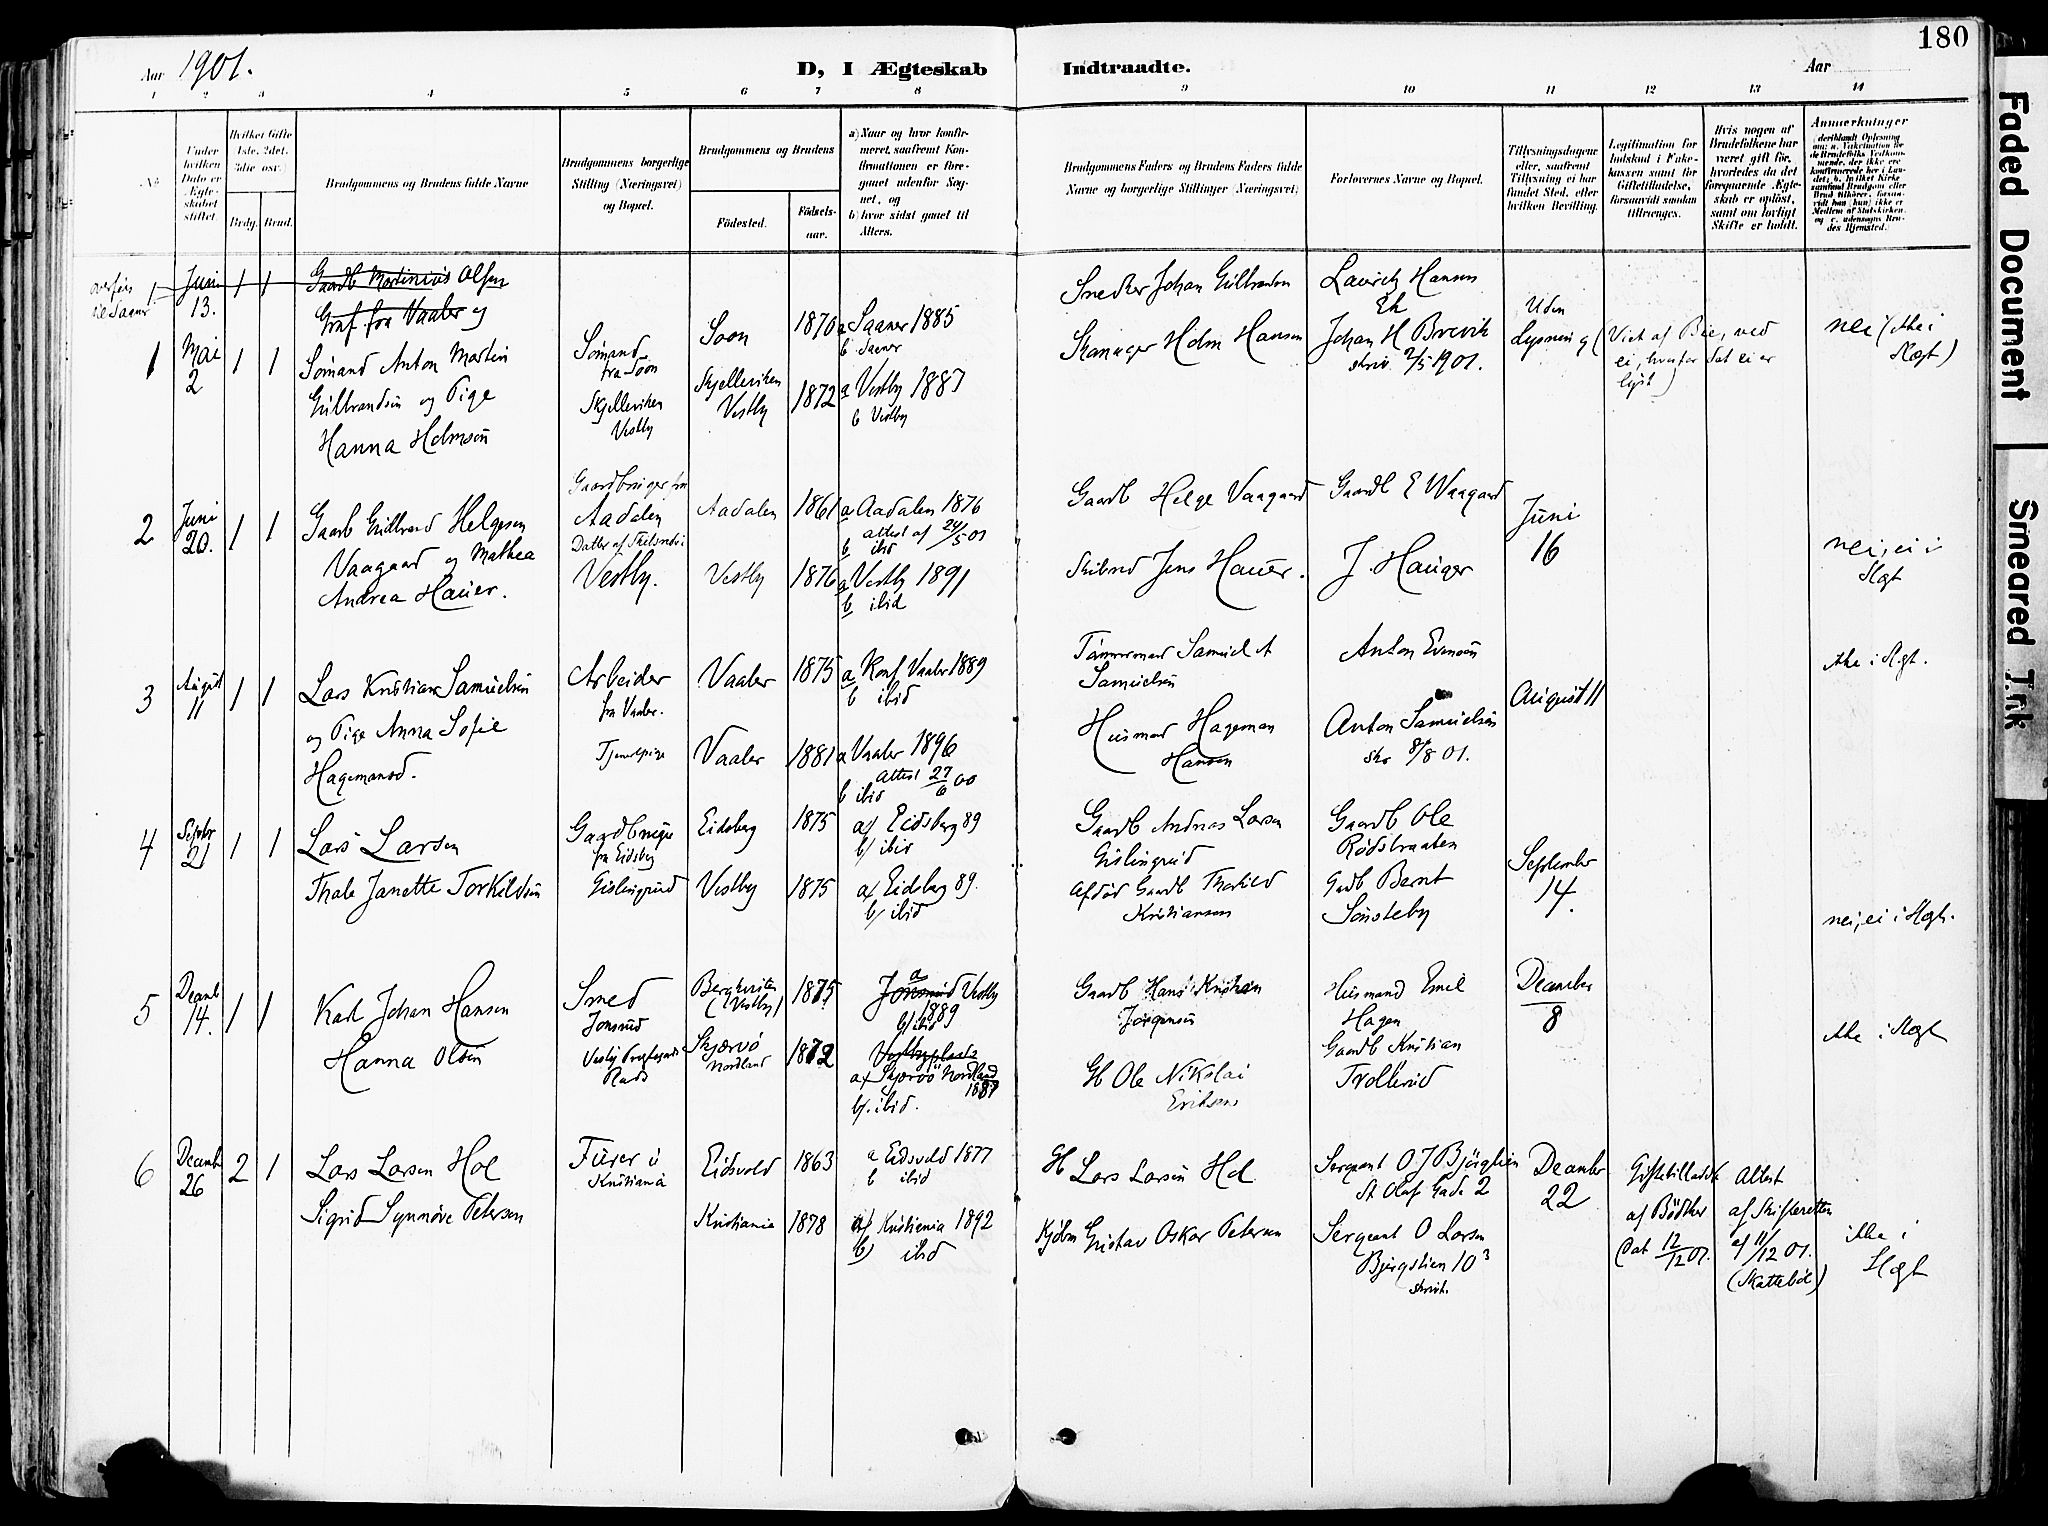 180
Aar 1901.
D, I Ægteskab Indtraadte.
Aar
1 2 3 4 5 6 7 8 9 10 11 12 13 14
No
Under hvilken Dato er Ægteskabet stiftet.
Hvilket Gifte 1ste, 2det, 3die osv.)
Brdg. Brud.
Brudgommens og Brudens fulde Navne
Brudgommens borgerlige Stilling (Næringsvei) og Bopæl.
Brudgommens og Brudens
Fødested.
Fødselsaar.
a) Naar og hvor konfirmeret, saafremt Konfirmationen er foregaaet udenfor Sognet, og
b) hvor sidst gaaet til Alters.
Brudgommens Faders og Brudens Faders fulde Navne og borgerlige Stillinger (Næringsvei)
Forlovernes Navne og Bopæl.
Tillysningsdagene eller, saafremt Tillysning ei har fundet Sted, efter hvilken Bevilling.
Legitimation for Indskud i Enkekassen samt for Giftetilladelse, forsaavidt saadan tiltrænges.
Hvis nogen af Brudefolkene har været gift før, hvorledes da det foregaaende Ægteskab er opløst, samt om lovligt Skifte er holdt.
Anmerkninger
overført til Saaner
1. Juni 13. 1 1
Gaardb Martinius Olsen
Graf fra Vaaler og
1 Mai 2 1 1
Sømand Anton Martin
Gulbrandsen og Pige
Hanna Holmsen
Sømand
fra Soon
Skjelleviken
Vestby
Soon 1870 a Saaner 1885
b Saaner
Skjelleviken
Vestby 1872 a Vestby 1887
b Vestby
Snedker Johan Gulbrandsen
Holm Hansen
Lauritz Hansen
Ek
Johan H Brevik
skriv 2/5 1901.
Uden
Lysning
ei, hvorfor det ei er
lyst)
nei (ikke i
Slægt)
2 Juni 20. 1 1
Gaarb Gulbrand Helgesen
Vaagaard og Mathea
Andrea Hauer.
Gaardbruger fra
Aadalen
Vestby.
Aadalen 1861 a Aadalen 1876
attest af 24/5 01
b ibid
Vestby 1876 a Vestby 1891
b ibid
Gaardb Helge Vaagaard
Skibsd Jens Hauer.
Gaardb E Waagaard
J. Hauger
Juni
16
nei, ei i
Slægt
3 August 11 1 1
Lars Kristian Samuelsen
og Pige Anna Sofie
Hagemansd.
Arbeider
fra Vaaler.
Tjenestpige
Vaaler 1875 a Konf Vaaler 1889
b ibid
Vaaler 1881 a Vaaler 1896
attest 27/6 00
b ibid
Tømmermand Samuel A
Samuelsen
Husmand Hageman
Hansen
Anton Evensen
Anton Samuelsen
skr 8/8 01.
August 11
ikke i Slgt.
4 Septbr 21 1 1
Lars Larsen
Thale Janette Torkildsen
Gaardbruger
fra Eidsberg
Gislingrud
Eidsberg 1875 a/ Eidsberg 89
b/ ibid
Vestby 1875 a/ Eidsberg 89.
b/ ibid
Gaardb Andreas Larsen
Gislingrud
Afdød Gaardb Thorkild
Kristiansen
Gaardb Ole
Rødsbraaten
Gadb Bernt
Sønsteby
September
14.
nei, ei i Slgt.
5 Decemb 14. 1 1
Karl Johan Hansen
Hanna Olsen
Smed
Jonsrud
Vestby Præstegaards
Plads
Bergkvisten
(Vestby) 1875 Jonsrud a Vestby
1889
b/ ibid
Skjærvø
Nordland 1872 Vestbyplads
a/ Skjærvø Nordland
1887
b/. ibid.
Gaardb Hans Kristian
Jørgensen
Gb Ole Nikolai
Eriksen
Husmand Emil
Hagen
Gaardb Kristian
Trollerud
December
8
ikke i Slægt
6 Decemb 26 2 1
Lars Larsen Hol
Sigrid Synnøve Petersen
Furer i
Kristiania
Eidsvold 1863 a Eidsvold 1877
b ibid
Kristiania 1878 a/ Kristiania 1892
b/ ibid
Gb Lars Larsen Hol
Kjøbm Gustav Oskar Petersen
Sergeant O J Bjørglien
St Olafs Gade 2
Sergeant O Larsen
Bjergstien 10³
skrivt.
December
22
Giftetilladelse
af Bødtker
Dat 12/12 01.
Attest
af Skifteretten
af 11/12 01.
(Skattebøl)
ikke i
Slægt
Faded Document
Smeared Ink